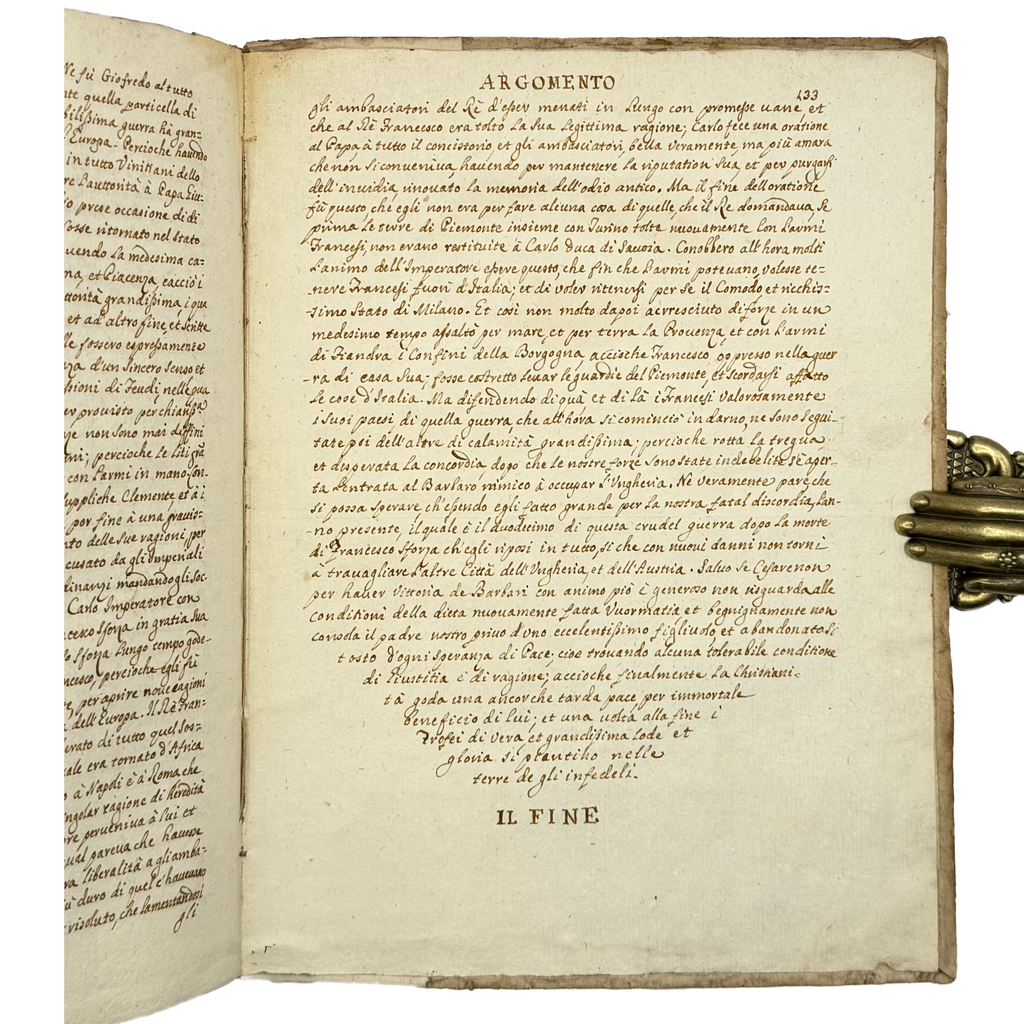 Ne fù Giofredo al tutto
nte quella particella di
bilißima guerra hà gran=
l'Europa. Percioche havendo
in tutto Vinitiani dello
re l'auttorità à Papa Giu=
io prese occasione di di
fosse ritornato nel stato
uendo la medesima ca=
na, et Piacenza, cacciò i
ttorità grandißima, i qua
et ad altro fine, et scritte
lle fossero espreßamente
nza d'un sincero senso et
ßioni di feudi, nelle qua
er provisto per chiariß.ª
ze non sono mai diffini
mi; percioche le liti già
con l'armi in mano son=
suppliche Clemente, et à i
por fine à una graviß=
nto delle sue ragioni, per
cusato da gli Imperiali
dinarij mandandogli soc.
Carlo Imperatore con
ncesco Sforza in gratia sua
lo Sforza lungo tempo gode=
ncesco, percioche egli fù
e, per aprire nove cagioni
dell'Europa. Il Rè Fran=
erato di tutto quel sos=
uale era tornato d'Africa
à Napoli è à Roma che
ingolar ragione di heredità
re perveniva à lui et
qual pareva che havesse
va liberalità a gli amba=
iù duro di quel c'havevano
risoluto, che lamentandosi
gli
ARGOMENTO
433
gli ambasciatori del Rè d'eßer menati in lungo con promeße vane, et
che al Rè Francesco era tolto la sua legittima ragione; Carlo fece una oratione
al Papa à tutto il concistorio et gli ambasciatori, bella veramente, ma più amara
che non si conveniva, havendo per mantenere la riputation sua, et per purgarsi
dell'invidia, rinovato la memoria dell'odio antico. Ma il fine dell'oratione
fù questo, che egli non era per fare alcuna cosa di quelle, che il Re domandava, se
prima le terre di Piemonte insieme con Turino tolte nuovamente con l'armi
Francesi, non erano restituite à Carlo duca di Savoia. Conobbero all'hora molti
l'animo dell'Imperatore eßere questo, che fin che l'armi potevano, volesse te=
nere Francesi fuori d'Italia; et di voler ritenersi per se il comodo et ricchis=
=simo stato di Milano. Et così non molto dapoi accresciuto di forze in un
medesimo tempo aßaltò per mare, et per terra la Provenza, et con l'armi
di Fiandra i confini della Borgogna, accioche Francesco oppresso nella guer
=ra di casa sua; fosse costretto levar le guardie del Piemonte, et scordarsi affatto
le cose d'Italia. Ma difendendo di quà et di là i Francesi valorosamente
i suoi paesi di quella guerra, che all'hora si cominciò in darno, ne sono segui
tate poi dell'altre di calamità grandißima; percioche rotta la tregua
et desperata la concordia dopo che le nostre forze sono state indebelite s'è aper=
ta l'entrata al Barbaro nimico à occupar l'Ungheria. Nè veramente pare che
si possa sperare ch'eßendo egli fatto grande per la nostra fatal discordia, l'an=
no presente, il quale è il duodecimo di questa crudel guerra dopo la morte
di Francesco Sforza ch'egli riposi in tutto, si che con nuovi danni non torni
à travagliare l'altre Città dell'Ungheria, et dell'Austria. Salvo se Cesare non
per haver vittoria de Barbari con animo piò è generoso non risguarda alle
conditioni della dieta nuovamente fatta Vuormatia et begnignamente non
consola il padre nostro privo d'uno eccelentißimo figliuolo, et abandonato si
tosto d'ogni speranza di Pace, cioè trovando alcuna tolerabile conditione
di giustitia è di ragione; accioche finalmente la Christiani=
tà goda una ancorche tarda pace per immortale
beneficio di lui; et una volta alla fine i
Trofei di vera et grandißima lode et
gloria si piantino nelle
terre de gli infedeli.
IL FINE